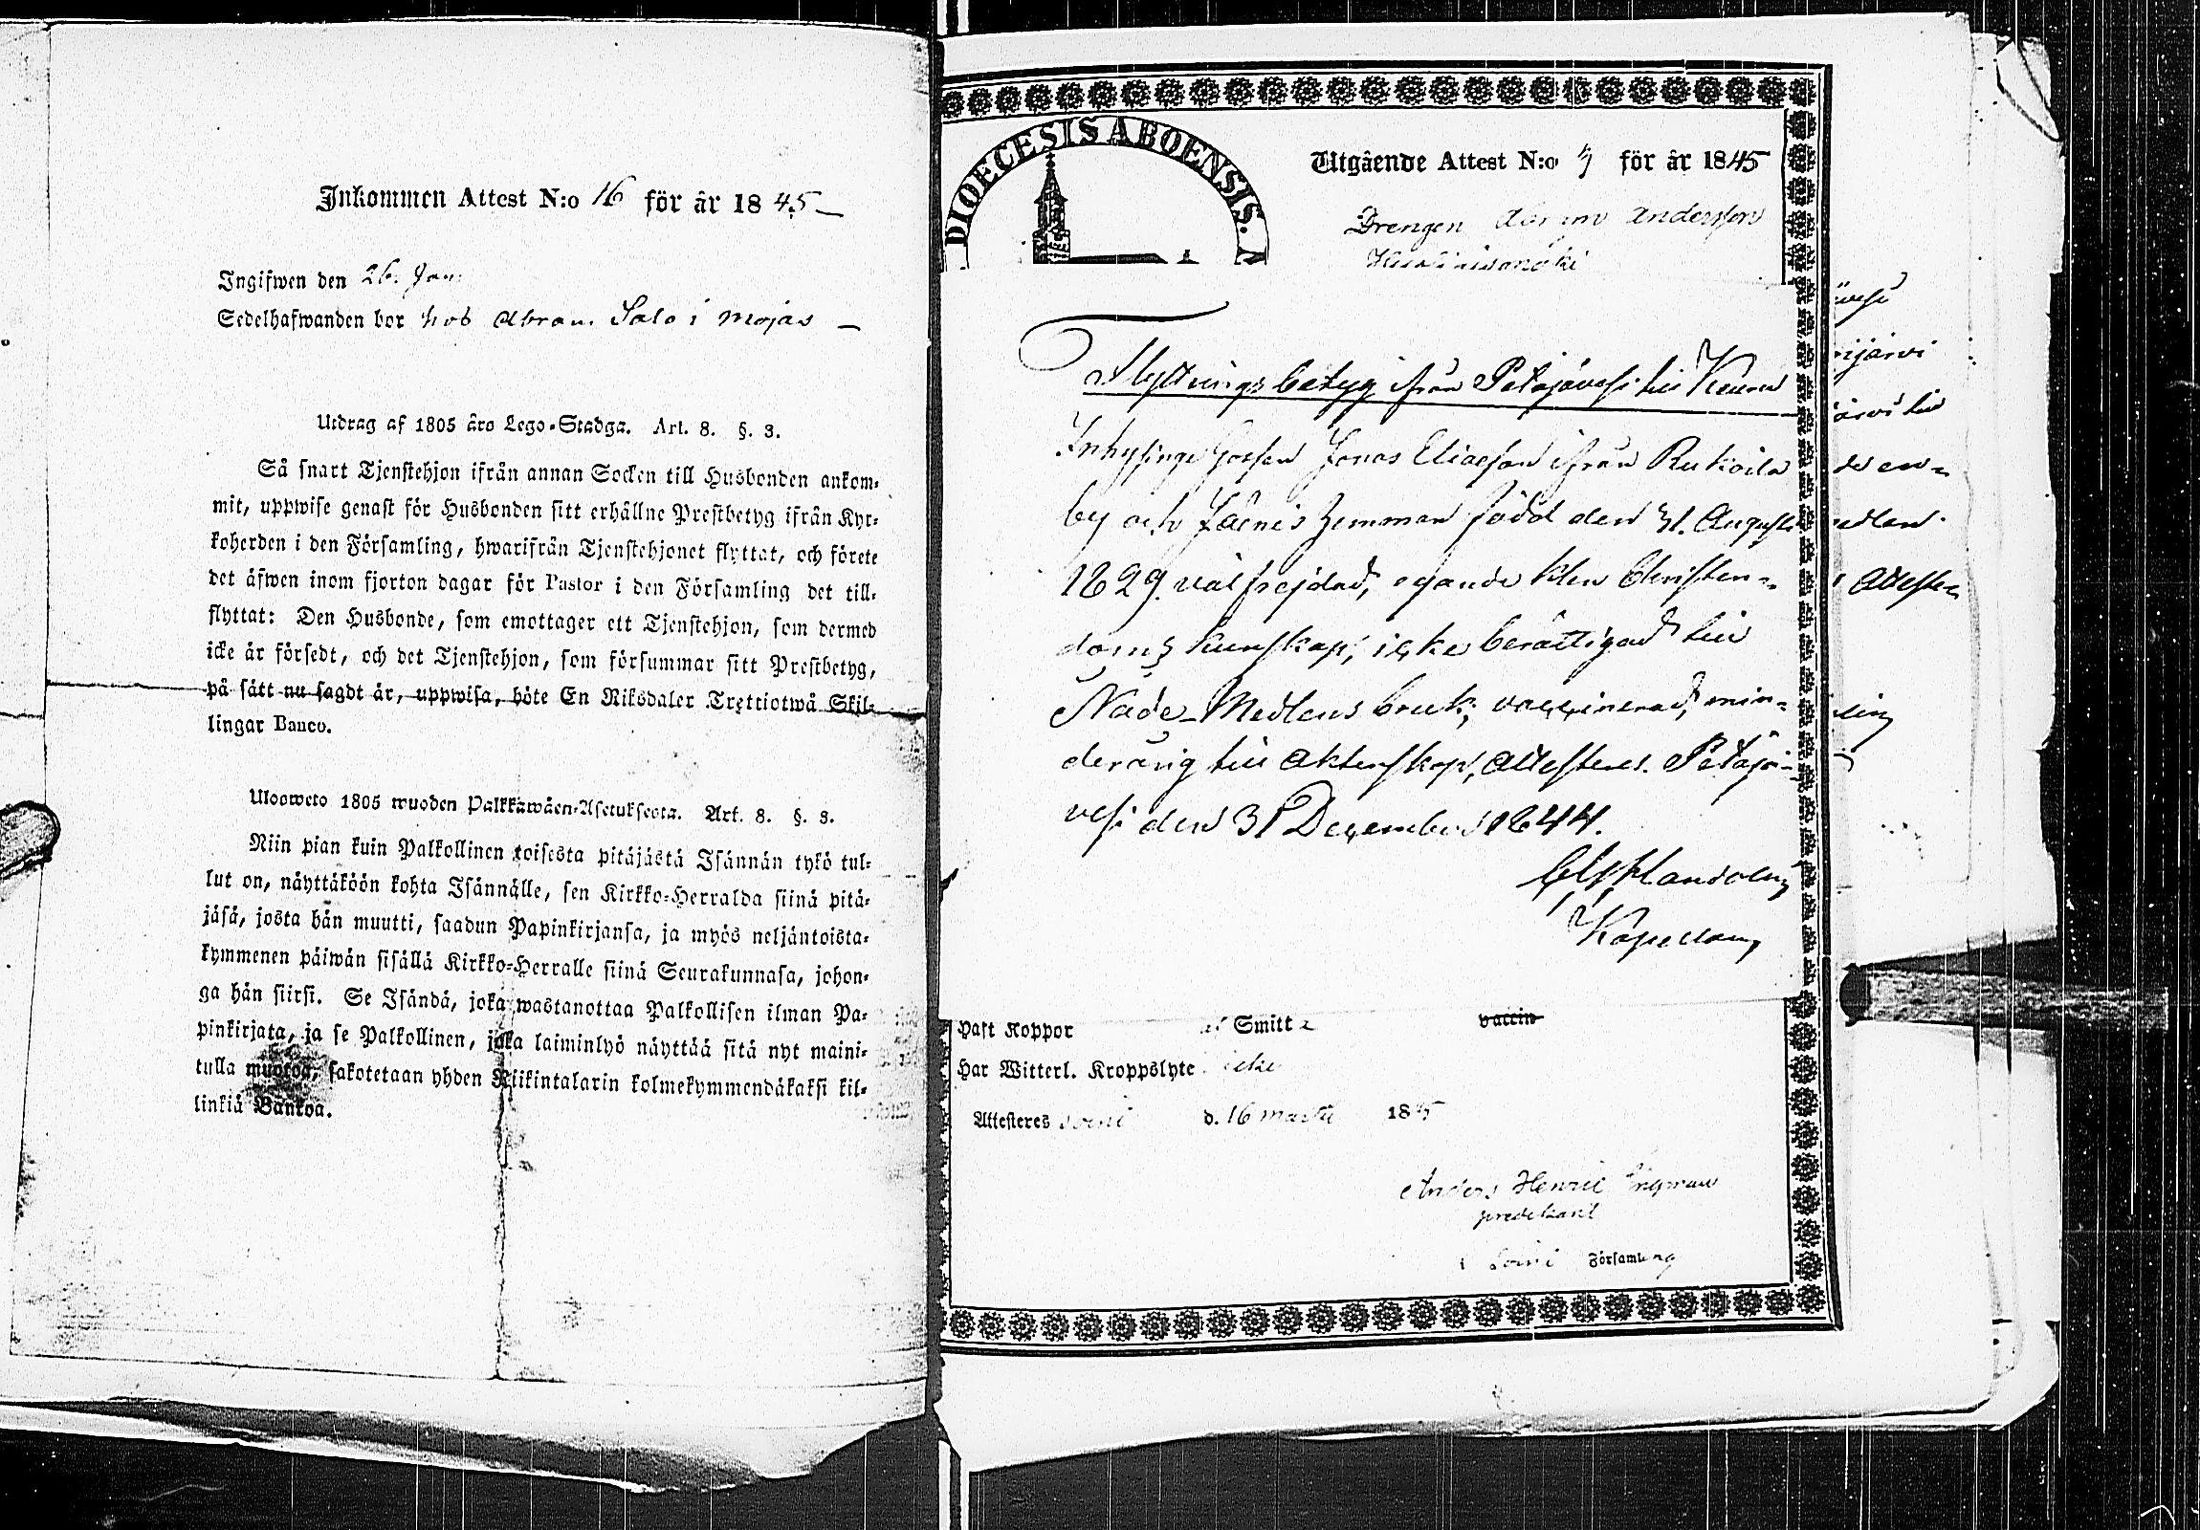 Inkommen Attest N:o 16 för år 1845
Ingifwen den 26. Jan.
Sedelhafwanden bor hos Abram Salo i Mojas
Utdrag af 1805 års Lego-Stadga. Art. 8. §. 3.
Så snart Tjenstehjon ifrån annan Socken till Husbonden ankom-
mit, uppwise genast för Husbonden sitt erhållne Prestbetyg ifrån Kyr-
koherden i den Församling, hwarifrån Tjenstehjonet flyttat, och förete
det äfwen inom fjorton dagar för Pastor i den Församling det till-
flyttat: Den Husbonde, som emottager ett Tjenstehjon, som dermed
icke är försedt, och det Tjenstehjon, som försummar sitt Prestbetyg,
på sätt nu sagdt är, uppwisa, böte En Riksdaler Trettiotwå Skil-
lingar Banco.
Ulosweto 1805 wuoden Palkkawäen-Asetuksesta. Art. 8. §. 3.
Niin pian kuin Palkollinen toisesta pitäjästä Isännän tykö tul-
lut on, näyttäköön kohta Isännälle, sen Kirkko-Herralda siinä pitä-
jäsä, josta hän muutti, saadun Papinkirjansa, ja myös neljäntoista-
kymmenen päiwän sisällä Kirkko-Herralle siinä Seurakunnasa, johon-
ga hän siirsi. Se Isändä, joka wastanottaa Palkollisen ilman Pa-
pinkirjata, ja se Palkollinen, joka laiminlyö näyttää sitä nyt maini-
tulla muotoa, sakotetaan yhden Riikintalarin kolmekymmendäkaksi kil-
linkiä Bankoa.
DIOECESIS ABOENSIS.
Utgående Attest N:o för år 1845
Drengen Abram Andersson
Flyttningsbetyg ifrån Petäjävesi till Keuru
Inhysinge Gossen Jonas Eliasson ifrån Rukoila
by och hemman född den 31. Augusti
1829. välfrejdad, egande klen Christen-
doms kunskap, icke berättigad till
Nåde-Medlens bruk, vaccinerad, min-
derårig till Äktenskap, Attesteres. Petäjä-
vesi den 31 December 1844.
Kapellan
Haft Koppor af Smitta vaccin
Har Witterl. Kroppslyte icke
Attesteres Soini d. 16 Martii 1845
Anders Henric
predikant
i Soini Församling
ijärvi
ärvi till
de en-
edlen
Atteste-